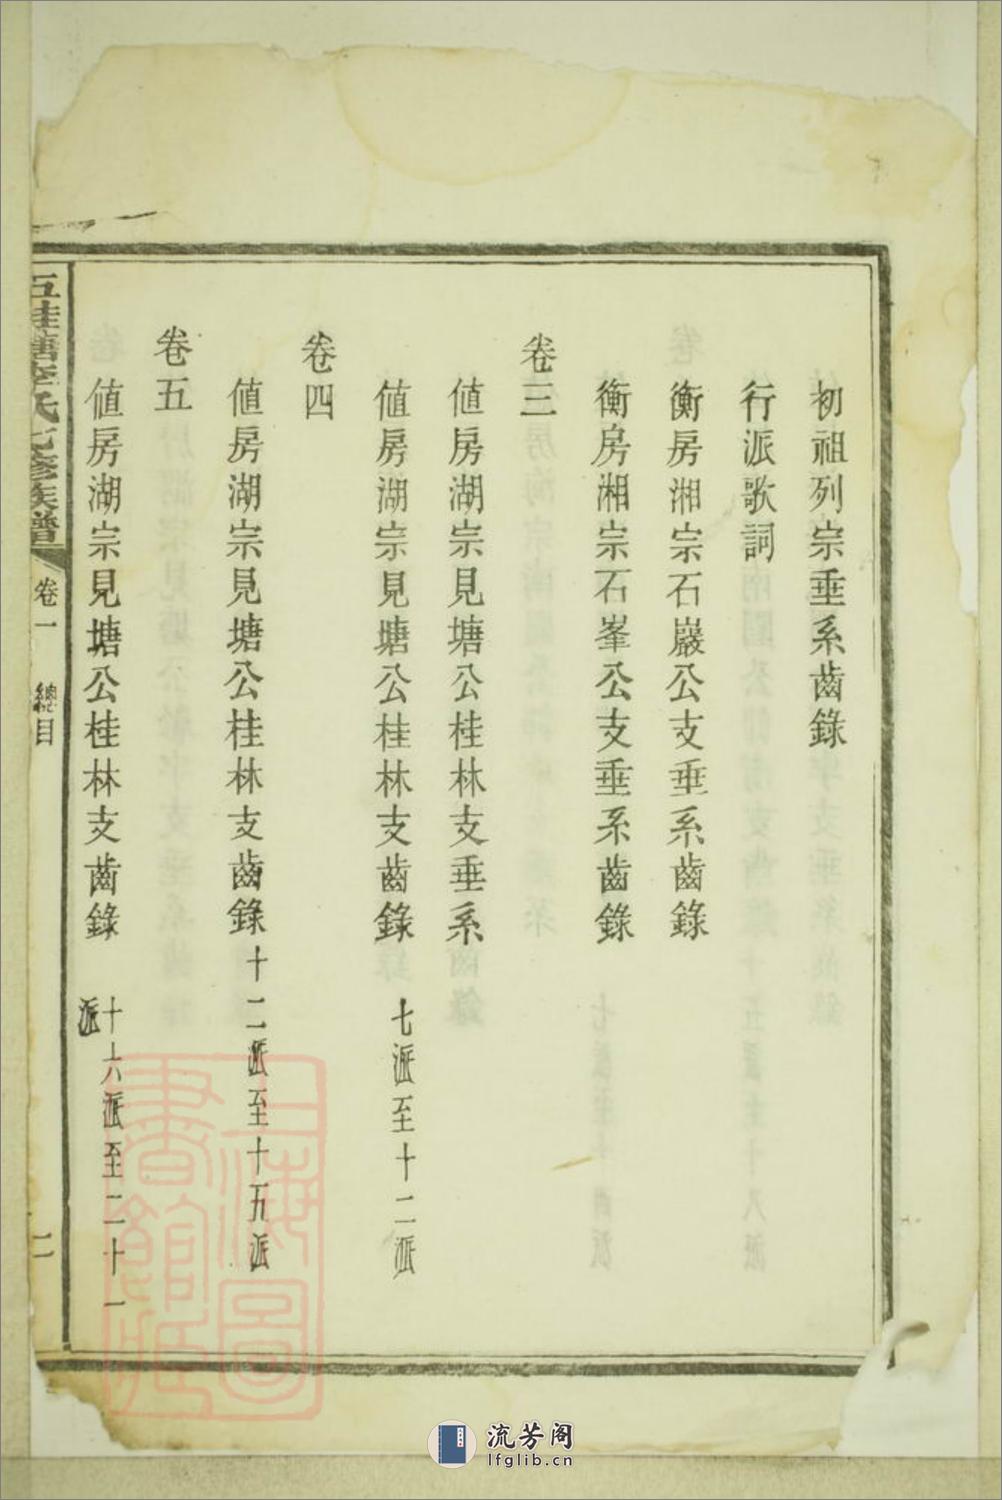 初祖列宗垂系齒錄
行派歌詞
衡房湘宗石巖公支垂系齒錄
衡房湘宗石峯公支垂系齒錄
卷三
値房湖宗見塘公桂林支垂系
値房湖宗見塘公桂林支齒錄 七派至十二派
卷四
値房湖宗見塘公桂林支齒錄 十二派至十五派
卷五
値房湖宗見塘公桂林支齒錄 十六派至二十一派
五桂塘李氏七修族譜 卷一 總目 二
上海圖書館藏
流芳阁
lfglib.cn